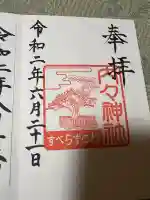 奉拝
々神社
すべらずの
令和二年六月二十一日
令和二年八月